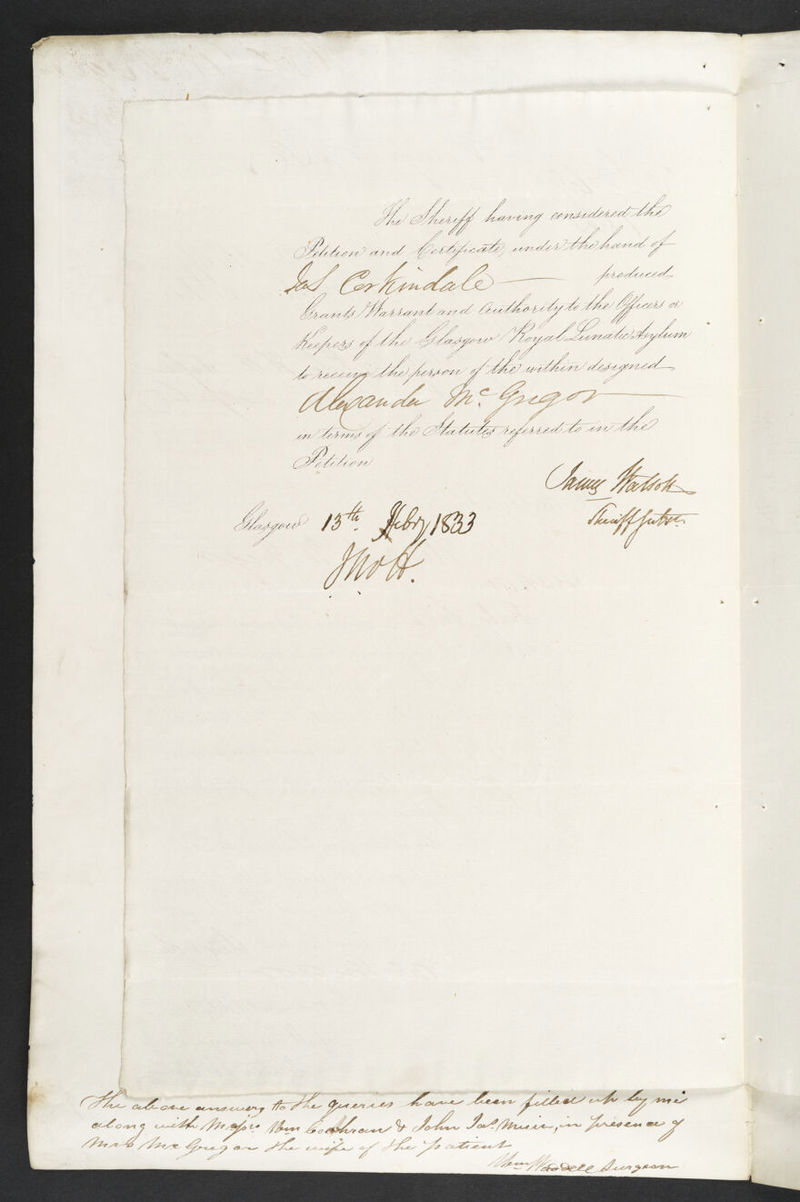 The Sheriff having considered the
Petition and Certificate, under the hand of
Jas Corkindale — produced
Grants Warrant and Authority to the Officers or
Keepers of the Glasgow Royal Lunatic Asylum
to receive the person of the within designed
Alexander McGrigor —
in terms of the Statutes referred to in the
Petition
James Watson
Sheriff Subst.
Glasgow 13th Feby 1833
The above answers to the queries have been filled up by me
along with Wm Cochran & John Jas Muir, in presence of
Mrs McGrigor the wife of the patient
Surgeon